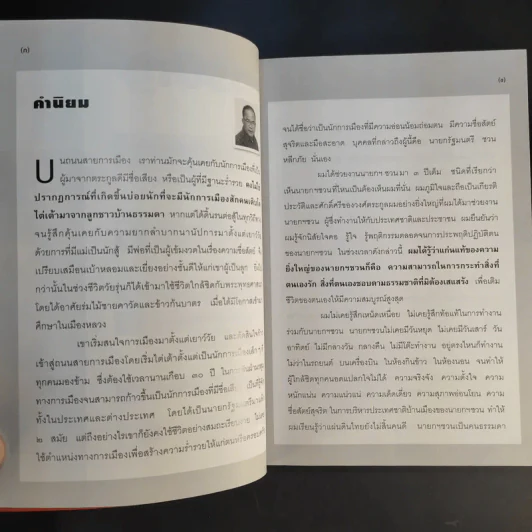 (ก)
คำนิยม
บนถนนสายการเมือง เราท่านมักจะคุ้นเคยกับนักการเมืองที่เป็น
ผู้มาจากตระกูลดีมีชื่อเสียง หรือเป็นผู้ที่มีฐานะร่ำรวย
ปรากฏการณ์ที่เกิดขึ้นบ่อยนักที่จะมีนักการเมืองสักคนหนึ่ง
ไต่เต้ามาจากลูกชาวบ้านธรรมดา หากแต่ได้ดิ้นรนต่อสู้ในทุกวิถี
จนรู้สึกคุ้นเคยกับความยากลำบากนานัปการมาตั้งแต่เยาว์
ด้วยการที่มีแม่เป็นนักสู้ มีพ่อที่เป็นผู้เข้มงวดในเรื่องความซื่อสัตย์
เปรียบเสมือนเบ้าหลอมและเยี่ยงอย่างชั้นดีให้แก่เขาผู้เป็นลูก
กว่านั้นในช่วงชีวิตวัยรุ่นก็ได้เข้ามาใช้ชีวิตใกล้ชิดกับพระพุทธศาสนา
โดยได้อาศัยร่มไม้ชายคาวัดและข้าวก้นบาตร เมื่อได้มีโอกาส
ศึกษาในเมืองหลวง
เขาเริ่มสนใจการเมืองมาตั้งแต่เยาว์วัย และตัดสินใจ
เข้าสู่ถนนสายการเมืองโดยเริ่มไต่เต้าตั้งแต่เป็นนักการเมือง
ทุกคนมองข้าม ซึ่งต้องใช้เวลานานเกือบ ๓๐ ปี
ทางการเมืองจนสามารถก้าวขึ้นเป็นนักการเมืองที่มีชื่อเสียง
ทั้งในประเทศและต่างประเทศ โดยได้เป็นนายกรัฐมนตรี
๒ สมัย แต่ถึงอย่างไรเขาก็ยังคงใช้ชีวิตอย่างสมถะเรียบง่าย
ใช้ตำแหน่งทางการเมืองเพื่อสร้างความร่ำรวยให้แก่ตนหรือครอบครัว
(ข)
จนได้ชื่อว่าเป็นนักการเมืองที่มีความอ่อนน้อมถ่อมตน มีความซื่อสัตย์
สุจริตและมือสะอาด บุคคลที่กล่าวถึงผู้นี้คือ นายกรัฐมนตรี ชวน
หลีกภัย นั่นเอง
ผมได้ช่วยงานนายกฯชวนมา ๓ ปีเต็ม ชนิดที่เรียกว่า
เห็นนายกฯชวนที่ไหนเป็นต้องเห็นผมที่นั่น ผมภูมิใจและถือเป็นเกียรติ
ประวัติและศักดิ์ศรีของวงศ์ตระกูลผมอย่างยิ่งที่ผมได้มาช่วยงาน
นายกฯชวน ผู้ซึ่งทำงานให้กับประเทศชาติและประชาชน ผมยืนยันว่า
ผมรู้จักนิสัยใจคอ รู้ใจ รู้พฤติกรรมตลอดจนการประพฤติปฏิบัติตน
ของนายกฯชวน ในช่วงเวลาดังกล่าวนี้ ผมได้รู้ว่าแก่นแท้ของความ
ยิ่งใหญ่ของนายกฯชวนก็คือ ความสามารถในการกระทำสิ่งที่
ตนเองรัก สิ่งที่ตนเองชอบตามธรรมชาติที่มีต้องเสแสร้ง เพื่อเติม
ชีวิตของตนเองให้มีความสมบูรณ์สูงสุด
ผมไม่เคยรู้สึกเหน็ดเหนื่อย ไม่เคยรู้สึกท้อแท้ในการทำงาน
ร่วมกับนายกฯชวน นายกฯชวนไม่เคยมีวันหยุด ไม่เคยมีวันเสาร์ วัน
อาทิตย์ ไม่มีกลางวัน กลางคืน ไม่มีโต๊ะทำงาน อยู่ตรงไหนก็ทำงาน
ไม่ว่าในรถยนต์ บนเครื่องบิน ในห้องกินข้าว ในห้องนอน จนทำให้
ผู้ใกล้ชิดทุกคนอดแปลกใจไม่ได้ ความจริงจัง ความตั้งใจ ความ
หนักแน่น ความแน่วแน่ ความเด็ดเดี่ยว ความสุภาพอ่อนโยน ความ
ซื่อสัตย์สุจริต ในการบริหารประเทศชาติบ้านเมืองของนายกฯชวน ทำให้
ผมเรียนรู้ว่าแผ่นดินไทยยังไม่สิ้นคนดี นายกฯชวนเป็นคนธรรมดา